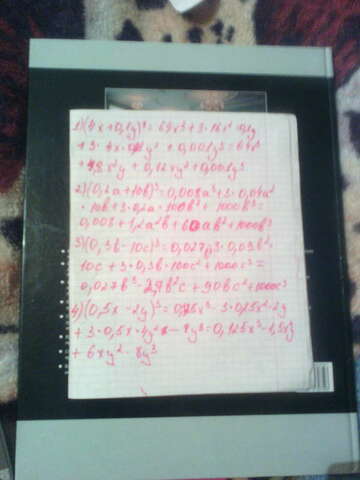 1) (4x+0,1y)³ = 64x³+3·16x²·0,1y
+3·4x·0,01y² + 0,001y³ = 64x³
+4,8x²y + 0,12xy² + 0,001y³
2) (0,2a+10b)³ = 0,008a³+3·0,04a²
·10b+3·0,2a·100b² + 1000b³ =
0,008 + 1,2a²b + 60ab² + 1000b³
3) (0,3b-10c)³ = 0,027b 3·0,09b²·
10c + 3·0,3b·100c² + 1000c³ =
0,027b³ - 2,7b²c + 90bc² + 1000c³
4) (0,5x - 2y)³ = 0,125x³ - 3·0,25x²·2y
+ 3·0,5x·4y² - 8y³ = 0,125x³ - 1,5x²y
+ 6xy² - 8y³